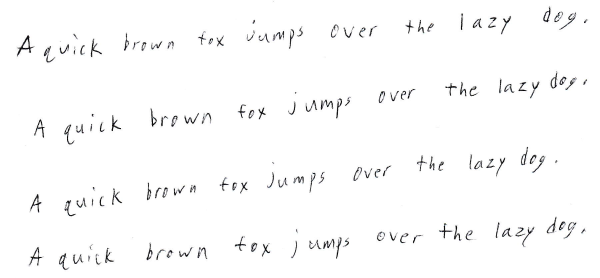 A quick brown fox jumps over the lazy dog.
A quick brown fox jumps over the lazy dog.
A quick brown fox jumps over the lazy dog.
A quick brown fox jumps over the lazy dog.